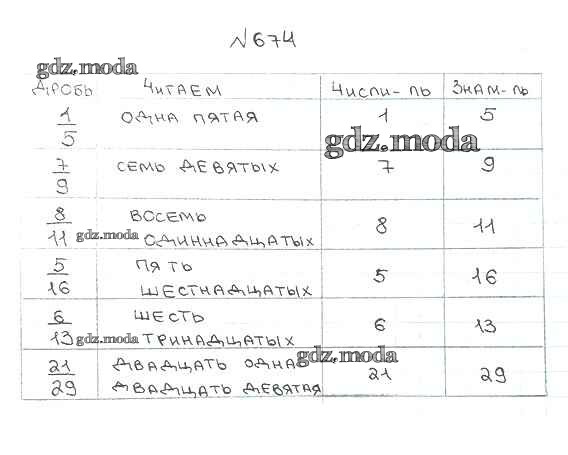 №674
gdz.moda
ДРОБЬ ЧИТАЕМ ЧИСЛИ-ЛЬ ЗНАМ-ЛЬ
1/5 ОДНА ПЯТАЯ 1 5
gdz.moda
7/9 СЕМЬ ДЕВЯТЫХ 7 9
8/11 ВОСЕМЬ 8 11
gdz.moda ОДИННАДЦАТЫХ
5/16 ПЯТЬ 5 16
ШЕСТНАДЦАТЫХ
6/13 ШЕСТЬ 6 13
gdz.moda ТРИНАДЦАТЫХ
gdz.moda
21/29 ДВАДЦАТЬ ОДНА 21 29
ДВАДЦАТЬ ДЕВЯТАЯ